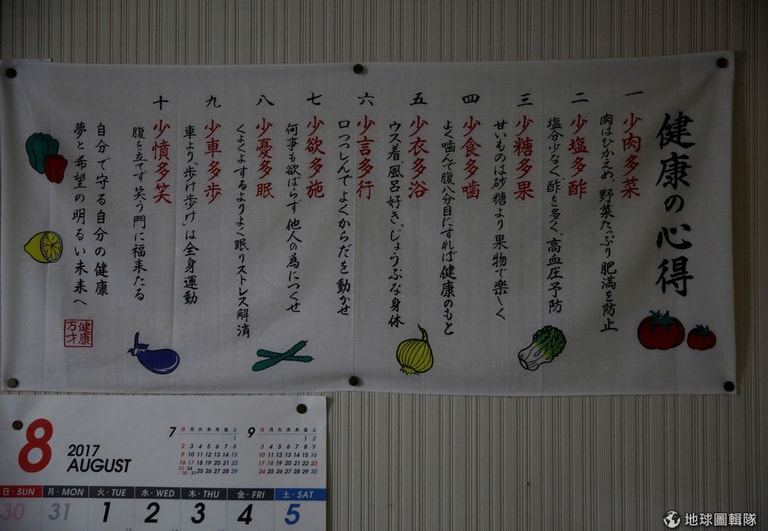 健康の心得
一 少肉多菜
肉はひかえめ、野菜たっぷり肥満を防止
二 少塩多酢
塩分少なく、酢を多く、高血圧予防
三 少糖多果
甘いものは砂糖より果物で楽しく
四 少食多噛
よく噛んで腹八分目にすれば健康のもと
五 少衣多浴
ウス着、風呂好き、じょうぶな身体
六 少言多行
口つつしんでよくからだを動かせ
七 少欲多施
何事も欲ばらず他人の為につくせ
八 少憂多眠
くよくよするよりよく眠りストレス解消
九 少車多歩
車より、歩け歩け、は全身運動
十 少憤多笑
腹を立てず笑う門に福来たる
自分で守る自分の健康
夢と希望の明るい未来へ
健康
万才
8 2017
AUGUST
7 日 月 火 水 木 金 土
9 日 月 火 水 木 金 土
日・SUN 月・MON 火・TUE 水・WED 木・THU 金・FRI 土・SAT
30 31 1 2 3 4 5
地球圖輯隊